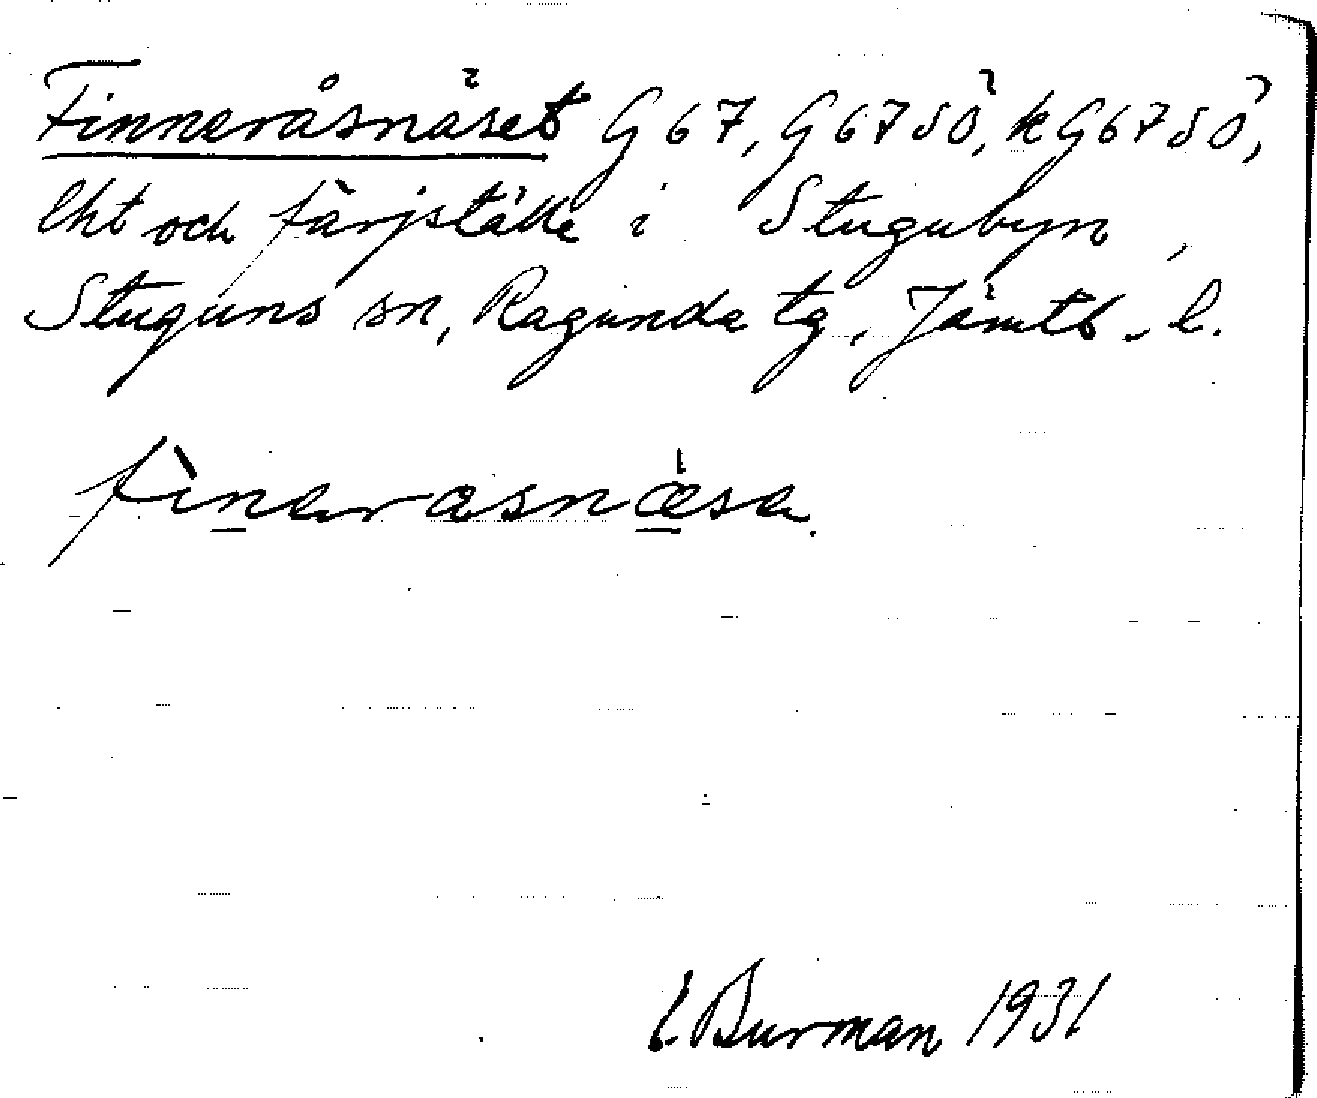 Finneråsnäset G 67, G 67 SÖ, k G 67 SÖ,
lht och färjställe i Stugubyn,
Stuguns sn, Ragunda tg, Jämtl. l.
finerasnæsa.
E. Burman 1931